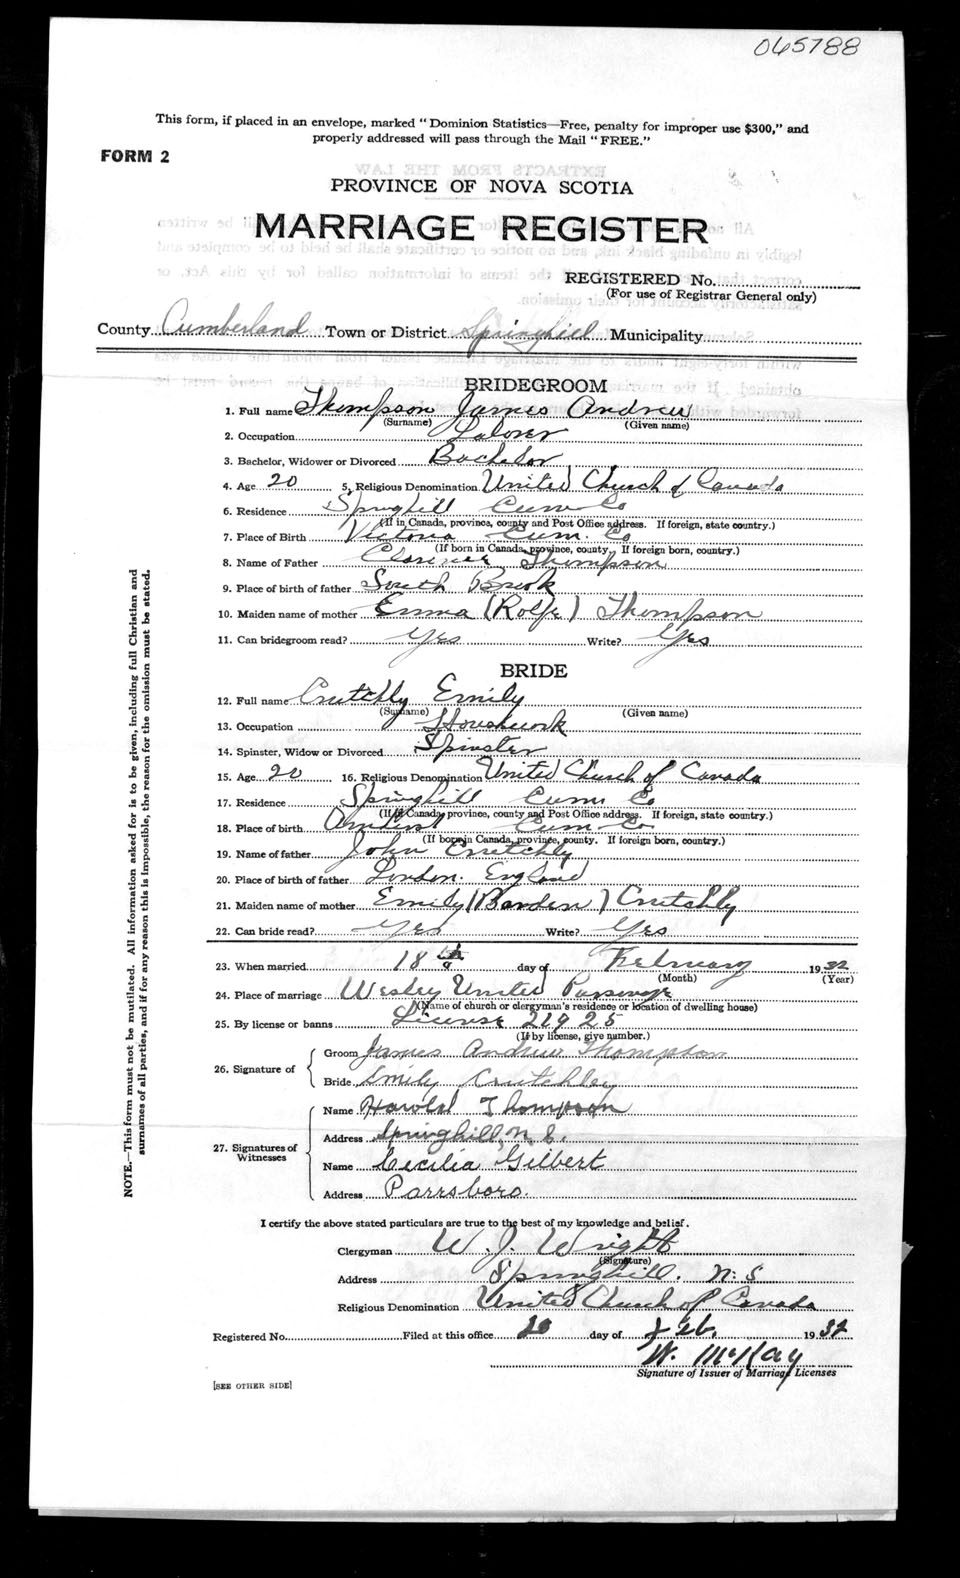 065788
This form, if placed in an envelope, marked "Dominion Statistics—Free, penalty for improper use $300," and
properly addressed will pass through the Mail "FREE."
FORM 2
PROVINCE OF NOVA SCOTIA
MARRIAGE REGISTER
REGISTERED No.
(For use of Registrar General only)
County Cumberland Town or District Springhill Municipality
BRIDEGROOM
1. Full name Thompson James Andrew
(Surname) (Given name)
2. Occupation Laborer
3. Bachelor, Widower or Divorced Bachelor
4. Age 20 5. Religious Denomination United Church of Canada
6. Residence Springhill Cum Co
(If in Canada, province, county and Post Office address. If foreign, state country.)
7. Place of Birth Victoria Cum. Co
(If born in Canada, province, county. If foreign born, country.)
8. Name of Father Clarence Thompson
9. Place of birth of father South Brook
10. Maiden name of mother Emma (Rolfe) Thompson
11. Can bridegroom read? Yes Write? Yes
BRIDE
12. Full name Crutchly Emily
(Surname) (Given name)
13. Occupation Housework
14. Spinster, Widow or Divorced Spinster
15. Age 20 16. Religious Denomination United Church of Canada
17. Residence Springhill Cum Co
(If in Canada, province, county and Post Office address. If foreign, state country.)
18. Place of birth Amherst Cum Co
(If born in Canada, province, county. If foreign born, country.)
19. Name of father John Crutchly
20. Place of birth of father London. England
21. Maiden name of mother Emily (Barden) Crutchly
22. Can bride read? Yes Write? Yes
23. When married 18th day of February 1932
(Month) (Year)
24. Place of marriage Wesley United Parsonage
(Name of church or clergyman's residence or location of dwelling house)
25. By license or banns License 21925
(If by license, give number.)
26. Signature of
Groom James Andrew Thompson
Bride Emily Crutchley
27. Signatures of Witnesses
Name Harold Thompson
Address Springhill, N.S.
Name Cecilia Gilbert
Address Parrsboro.
I certify the above stated particulars are true to the best of my knowledge and belief.
Clergyman W. J. Wright
(Signature)
Address Springhill. N.S
Religious Denomination United Church of Canada
Registered No. Filed at this office 20 day of Feb. 1932
W. McKay
Signature of Issuer of Marriage Licenses
[SEE OTHER SIDE]
NOTE.—This form must not be mutilated. All information asked for is to be given, including full Christian and
surnames of all parties, and if for any reason this is impossible, the reason for the omission must be stated.